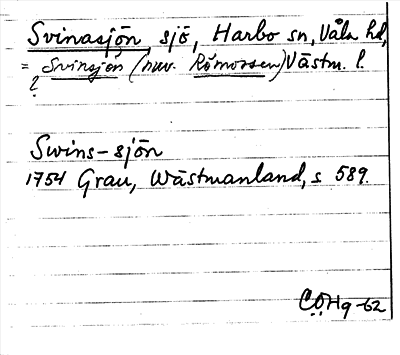 Svinasjön sjö, Harbo sn, Våla hd,
= Svinsjön (nuv. Römossen) Västm. l.
?
Swins-sjön
1754 Grau, Wästmanland, s 589.
COHg -62